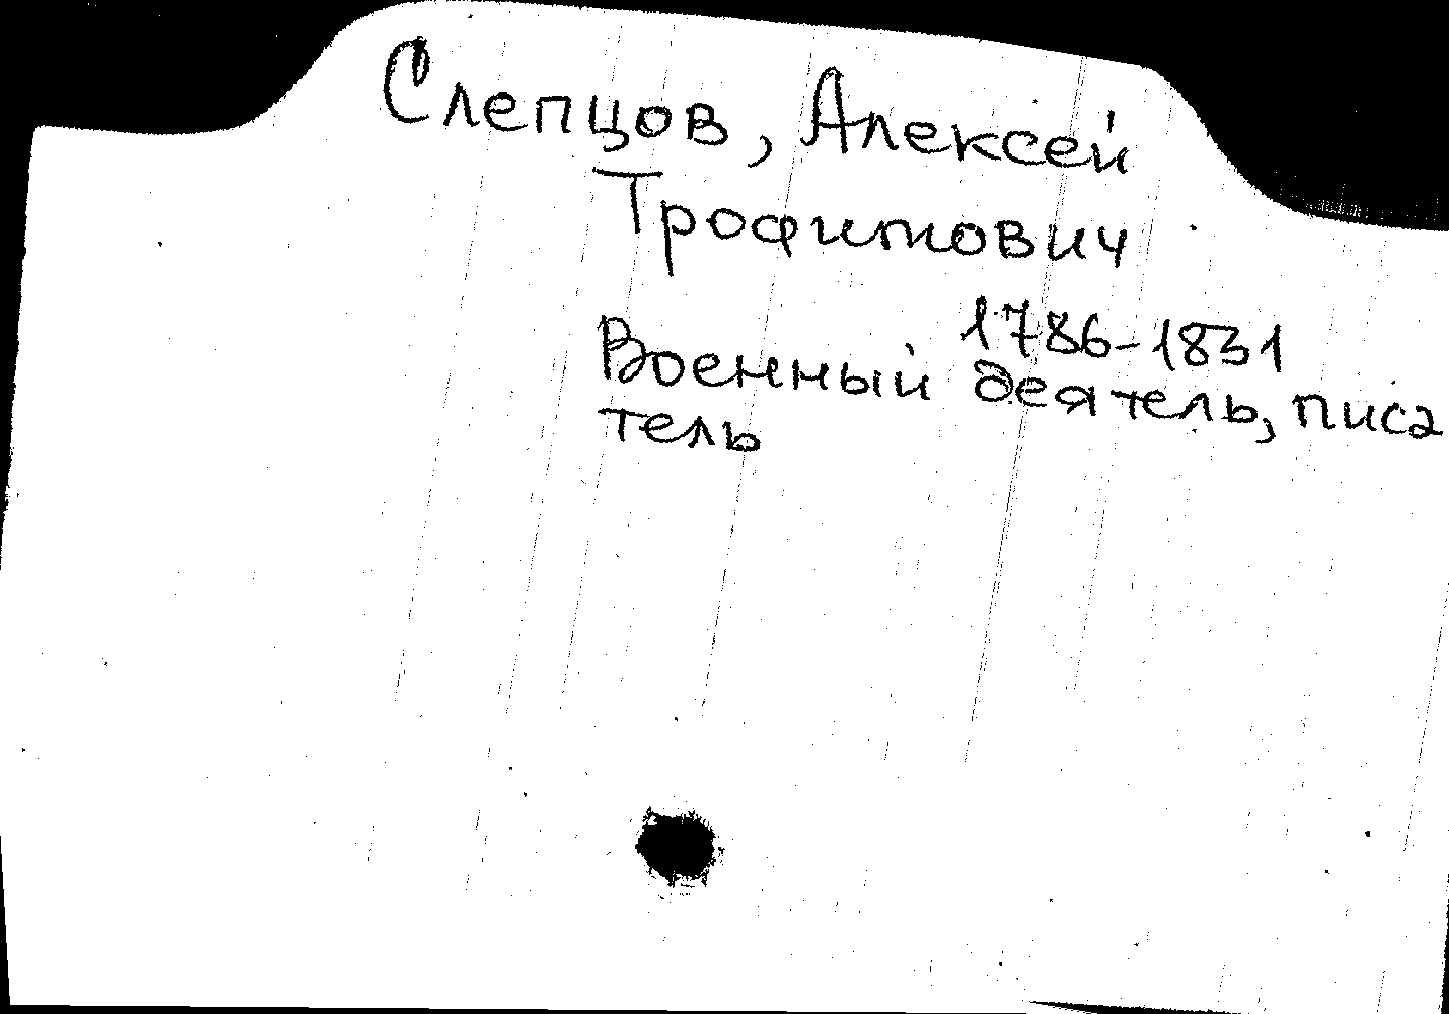 Слепцов, Алексей
Трофимович
1786-1831
Военный деятель, писа
тель